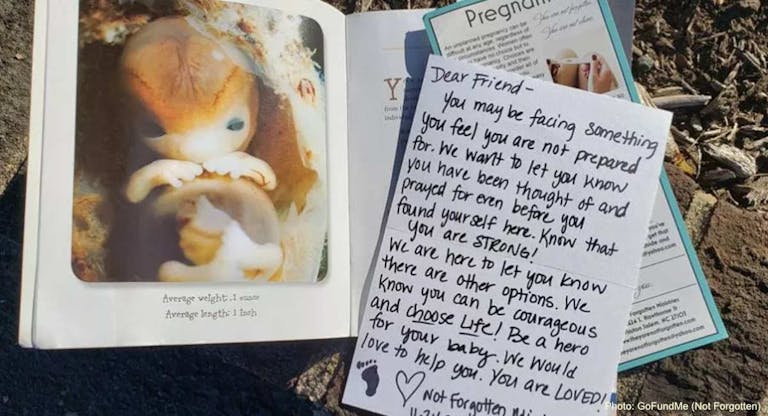 Average weight: .1 ounce
Average length: 1 inch
Y
from the
indivi
Pregnan
You are not forgotten.
You are not alone.
An unplanned pregnancy can be
difficult at any age, regardless of
Dear Friend -
You may be facing something
you feel you are not prepared
for. We want to let you know
you have been thought of and
prayed for even before you
found yourself here. Know that
you are STRONG!
We are here to let you know
there are other options. We
know you can be courageous
and choose Life! Be a hero
for your baby. We would
love to help you. You are LOVED!
Not Forgotten Mi
Forgotten Ministries
Photo: GoFundMe (Not Forgotten)